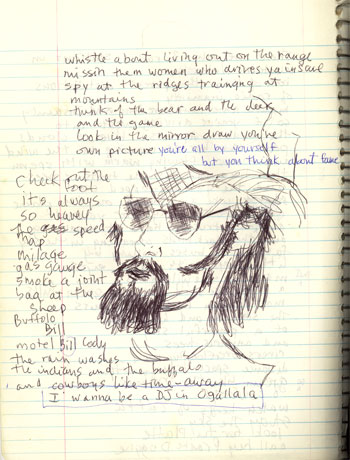 whistle about living out on the range
missin them women who drives ya insane
spy at the ridges traingng at
mountains
think of the bear and the deer
and the game
look in the mirror draw you've
own picture you're all by yourself
but you think about fame
Check out the
foot
it's always
so heavey
the gas speed
map
milage
gas gauge
smoke a joint
bag at the
sheep
Buffolo
Bill
motel Bill Cody
the rain washes
the indians and the buffalo
and cowboys like time away
I wanna be a DJ in Ogallala